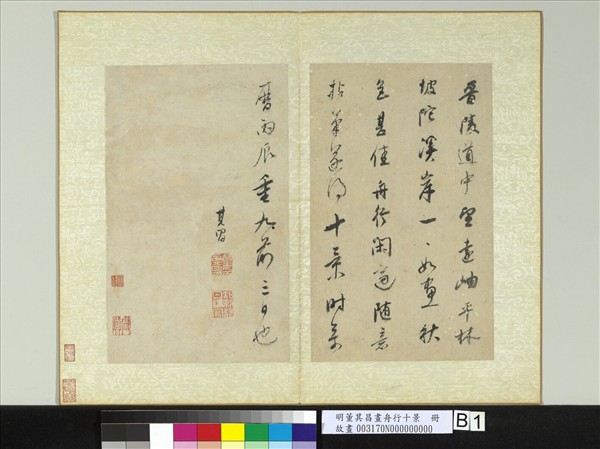 晉陵道中望遠岫平林
坡陀溪岸一一如畫秋
色甚佳舟行閑適隨意
拈筆遂得十景時萬
曆丙辰重九前三日也
其昌
明董其昌畫舟行十景　冊
故畫003170N000000000
B 1